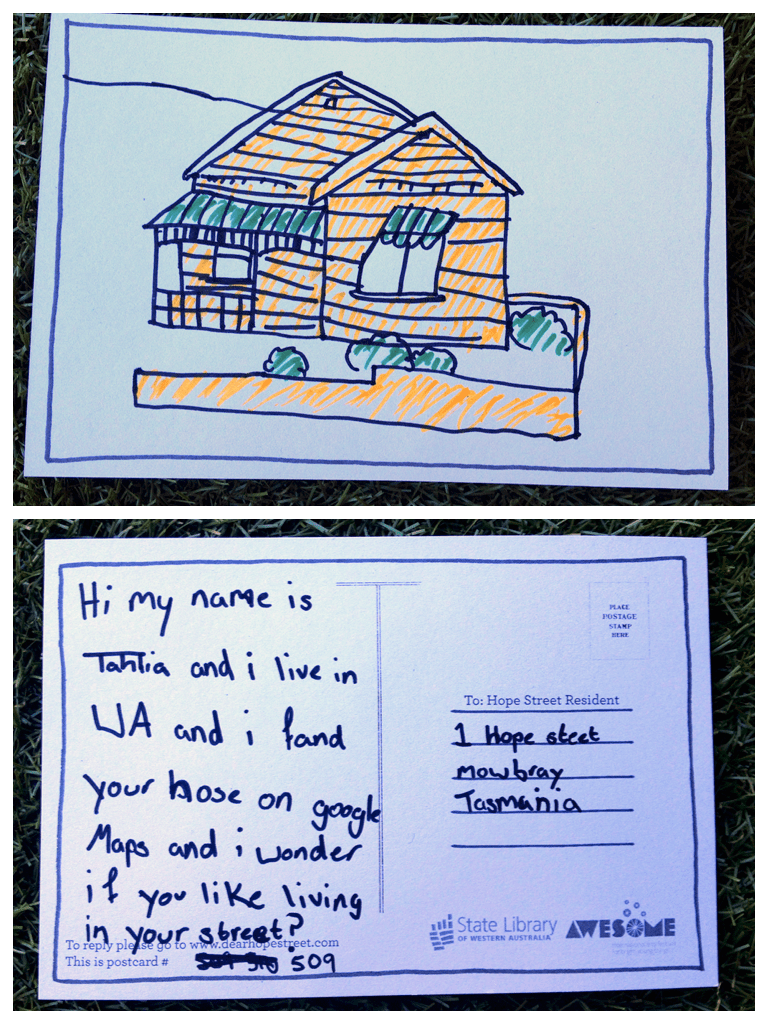 Hi my name is
Tahlia and i live in
WA and i fand
your hose on google
Maps and i wonder
if you like living
in your street?
To reply please go to www.dearhopestreet.com
This is postcard # 509
PLACE
POSTAGE
STAMP
HERE
To: Hope Street Resident
1 Hope steet
mowbray
Tasmainia
State Library
OF WESTERN AUSTRALIA
AWESOME